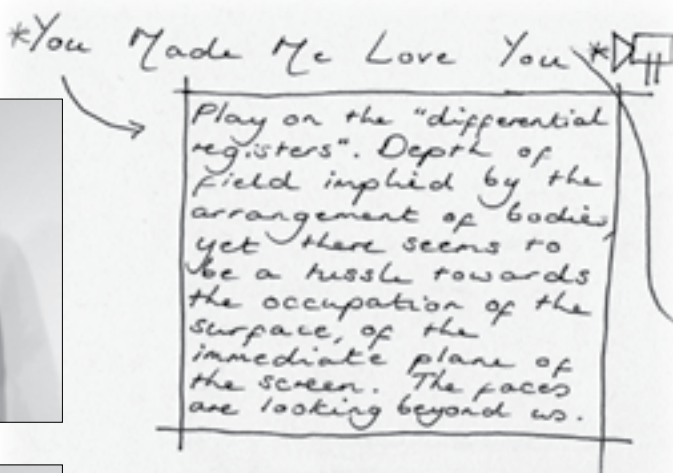 *You Made Me Love You *
Play on the "differential
registers". Depth of
field implied by the
arrangement of bodies,
yet there seems to
be a tussle towards
the occupation of the
surface, of the
immediate plane of
the screen. The faces
are looking beyond us.